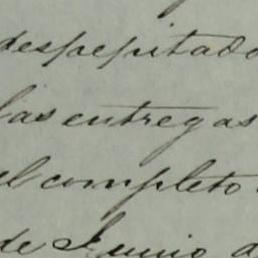 despepitado
las entregas
el completo
de Junio d